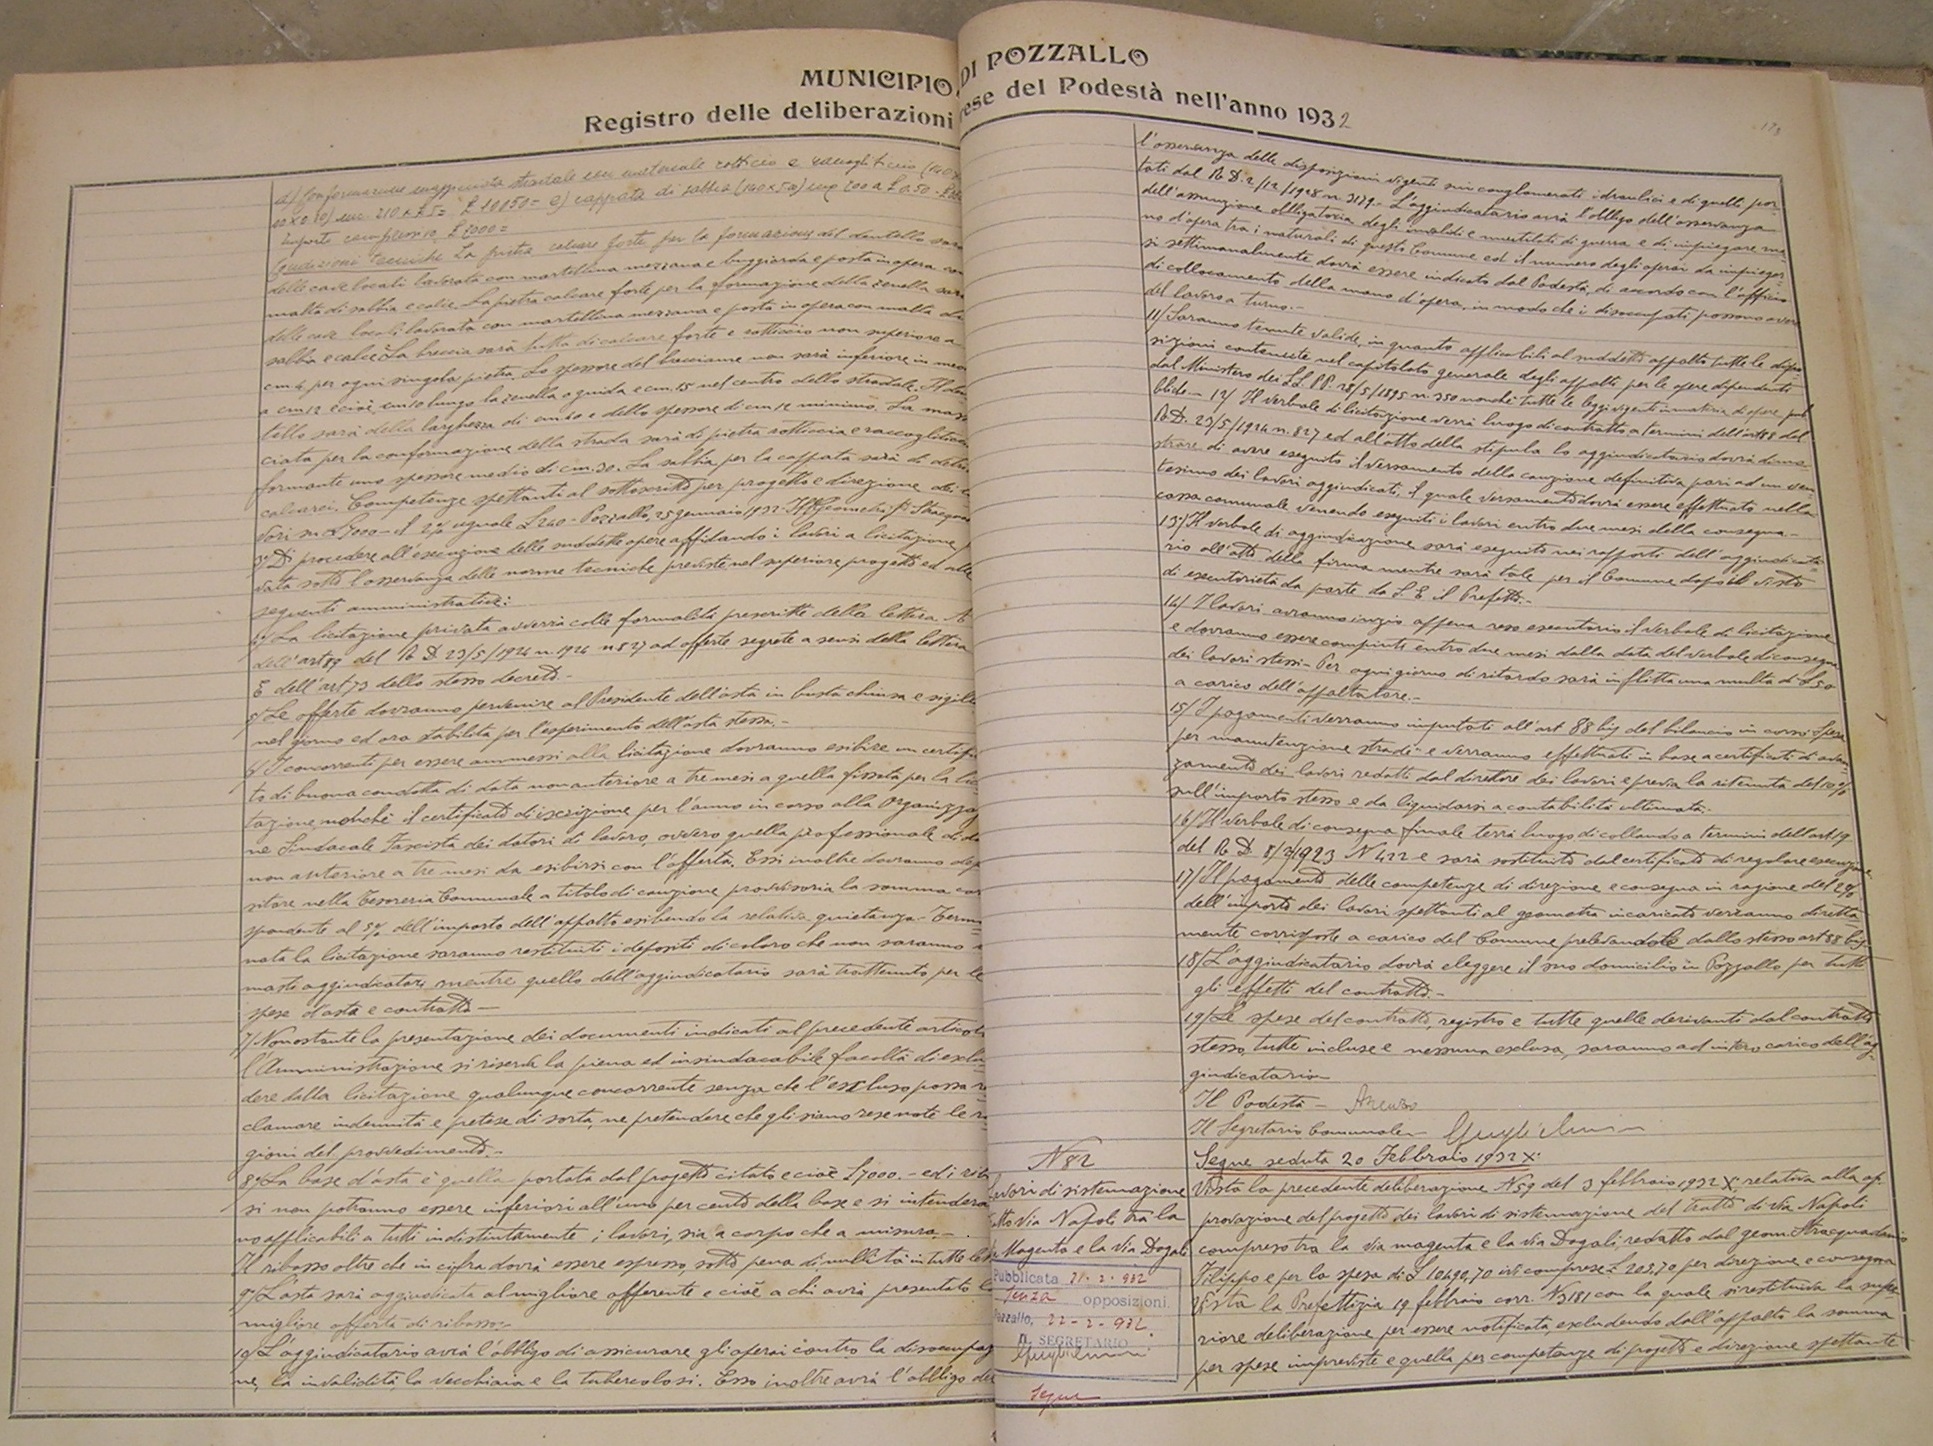 MUNICIPIO DI POZZALLO
Registro delle deliberazioni prese del Podestà nell'anno 1932
importo complessivo £ 7000=
Condizioni tecniche La pietra calcare forte per la formazione del dentello sarà
delle cave locali lavorata con martellina mezzana e buggiarda e posta in opera con
malta di sabbia e calce. La pietra calcare forte per la formazione della zanella sarà
delle cave locali lavorata con martellina mezzana e posta in opera con malta di
sabbia e calce. La breccia sarà tutta di calcare forte e rotticcio non superiore a
cm 4 per ogni singola pietra. Lo spessore del brecciame non sarà inferiore in media
a cm 12 e cioè cm 10 lungo la zanella o guida e cm 15 nel centro dello stradale. Il den
tello sarà della larghezza di cm 20 e dello spessore di cm 12 minimo. La mass
ciata per la conformazione della strada sarà di pietra rotticcia e raccogliticcia
formante uno spessore medio di cm. 30. La sabbia per la cappata sarà di detriti
calcarei. Competenze spettanti al sottoscritto per progetto e direzione dei la
vori su £ 7000 - il 2% uguale £ 140 - Pozzallo, 25 gennaio 1932 - Il Geometra
3°) Di procedere all'esecuzione delle suddette opere affidando i lavori a licitazione
vata sotto l'osservanza delle norme tecniche previste nel superiore progetto ed alle
seguenti amministrative:
4°) La licitazione privata avverrà colle formalità prescritte dalla lettera A
dell'art 89 del R D 23/5/1924 n. 1924 n 827 ad offerte segrete a sensi della lettera
E dell'art 73 dello stesso decreto.-
5°) Le offerte dovranno pervenire al Presidente dell'asta in busta chiusa e sigill
nel giorno ed ora stabilita per l'esperimento dell'asta stessa.-
6°) I concorrenti per essere ammessi alla licitazione dovranno esibire un certifi
to di buona condotta di data non anteriore a tre mesi a quella fissata per la lici
tazione, nonchè il certificato di iscrizione per l'anno in corso alla Organizzazio
ne Sindacale Fascista dei datori di lavoro, ovvero quella professionale di data
non anteriore a tre mesi da esibirsi con l'offerta. Essi inoltre dovranno depo
sitare nella Tesoreria Comunale a titolo di cauzione provvisoria la somma corri
spondente al 5% dell'importo dell'appalto esibendo la relativa quietanza - Termi
nata la licitazione saranno restituiti i depositi di coloro che non saranno ri
masti aggiudicatari mentre quello dell'aggiudicatario sarà trattenuto per le
spese d'asta e contratto -
7°) Nonostante la presentazione dei documenti indicati al precedente articolo
l'Amministrazione si riserva la piena ed insindacabile facoltà di esclu
dere dalla licitazione qualunque concorrente senza che l'escluso possa re
clamare indennità e pretese di sorta, ne pretendere che gli siano rese note le ra
gioni del provvedimento.-
8°) La base d'asta è quella portata dal progetto citato e cioè £ 7000.- ed i ribas
si non potranno essere inferiori all'uno per cento della base e si intendera
no applicabili a tutti indistintamente i lavori, sia a corpo che a misura.-
Il ribasso oltre che in cifra dovrà essere espresso, sotto pena di nullità in tutte le
9°) L'asta sarà aggiudicata al migliore offerente e cioè a chi avrà presentato la
migliore offerta di ribasso.-
10°) L'aggiudicatario avrà l'obbligo di assicurare gli operai contro la disoccupaz
ne, la invalidità la vecchiaia e la tubercolosi. Esso inoltre avrà l'obbligo del
l'osservanza delle disposizioni vigenti sui conglomerati idraulici e di quelle por
tati dal R D. 2/12/1928 n. 3179.- L'aggiudicatario avrà l'obbligo dell'osservanza
dell'assunzione obbligatoria degli invalidi e mutilati di guerra e di impiegare ma
no d'opera tra i naturali di questo Comune ed il numero degli operai da impiegar
si settimanalmente dovrà essere indicato dal Podestà, di accordo con l'ufficio
di collocamento della mano d'opera, in modo che i disoccupati possono avere
del lavoro a turno.-
11°) Saranno tenute valide, in quanto applicabili al suddetto appalto tutte le dispo
sizioni contenute nel capitolato generale degli appalti per le opere dipendenti
dal Ministero dei LL. PP. 28/5/1895 n. 350 nonchè tutte le leggi vigenti in materia di opere pub
bliche.- 12°) Il verbale di licitazione verrà luogo di contratto a termini dell'art 88 del
R D. 23/5/1924 n. 827 ed all'atto della stipula lo aggiudicatario dovrà dimo
strare di avere eseguito il versamento della cauzione definitiva pari ad un ven
tesimo dei lavori aggiudicati, il quale versamento dovrà essere effettuato nella
cassa comunale venendo eseguiti i lavori entro due mesi della consegna.-
13°) Il verbale di aggiudicazione sarà eseguito nei rapporti dell'aggiudicata
rio all'atto della firma mentre sarà tale per il Comune dopo il visto
di esecutorietà da parte da S. E il Prefetto.-
14°) I lavori avranno inizio appena reso esecutorio il verbale di licitazione
e dovranno essere compiuti entro due mesi dalla data del verbale di consegna
dei lavori stessi - Per ogni giorno di ritardo sarà inflitta una multa di £ 50
a carico dell'appaltatore.-
15°) I pagamenti verranno imputati all'art 88 bis del bilancio in corso "Spese
per manutenzione strade" e verranno effettuati in base a certificati di avan
zamento dei lavori redatti dal direttore dei lavori e previa la ritenuta del 10%
sull'importo stesso e da liquidarsi a contabilità ultimata.-
16°) Il verbale di consegna finale terrà luogo di collaudo a termini dell'art 19
del R D 8/2/1923 N 422 e sarà sostituito dal certificato di regolare esecuzione
17°) Il pagamento delle competenze di direzione e consegna in ragione del 2%
dell'importo dei lavori spettanti al geometra incaricato verranno diretta
mente corrisposte a carico del Comune prelevandole dallo stesso art 88 bis
18°) L'aggiudicatario dovrà eleggere il suo domicilio in Pozzallo per tutti
gli effetti del contratto.-
19°) Le spese del contratto, registro e tutte quelle derivanti dal contratto
stesso, tutte incluse e nessuna esclusa, saranno ad intero carico dell'ag
giudicatario
Il Podestà -
Il Segretario Comunale -
N 82
Lavori di sistemazione
tratto Via Napoli tra la
Via Magenta e la Via Dogali
Pubblicata 21. 2. 932
senza opposizioni.
Pozzallo, 22-2-932.
IL SEGRETARIO
Segue
Segue seduta 20 Febbraio 1932 X°
Vista la precedente deliberazione N 59 del 3 febbraio 1932 X° relativa alla ap
provazione del progetto dei lavori di sistemazione del tratto di via Napoli
compreso tra la via magenta e la via Dogali, redatto dal geom. Stracquadanio
Filippo e per la spesa di £ 10490,70 ivi comprese £ 205,70 per direzione e consegna
Vista la Prefettizia 19 febbraio corr. N 3181 con la quale si restituisce la supe
riore deliberazione per essere notificata, escludendo dall'appalto la somma
per spese impreviste e quella per competenze di progetto e direzione spettante